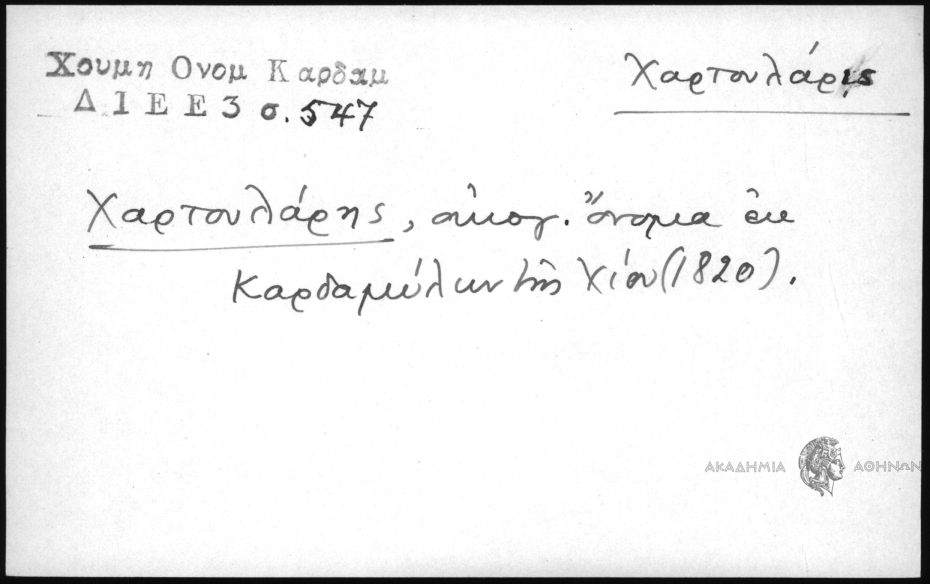 Χουμη Ονομ Καρδαμ
Δ Ι Ε Ε 3 σ. 547
Χαρτουλάρης
Χαρτουλάρης, οἰκογ. ὄνομα ἐκ
Καρδαμύλων τῆς Χίου (1820).
ΑΚΑΔΗΜΙΑ ΑΘΗΝΩΝ